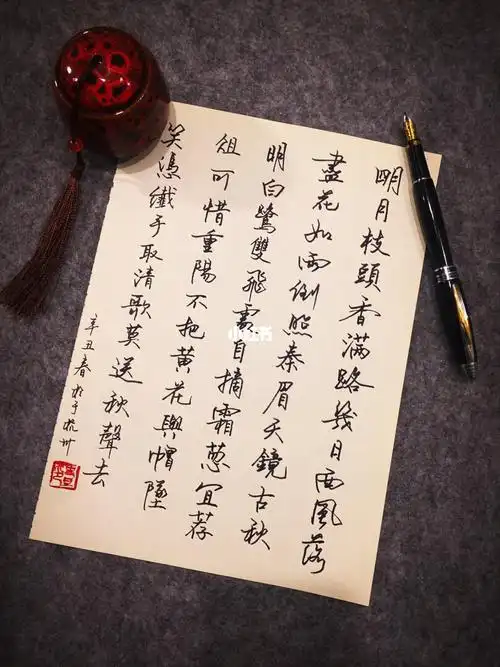 明月枝頭香满路幾日西風落
盡花如雨倒照秦眉天鏡古秋
明白鷺雙飛處自摘霜葱宜荐
俎可惜重陽不把黄花與帽墜
笑憑纖手取清歌莫送秋聲去
辛丑春于杭州
小红书